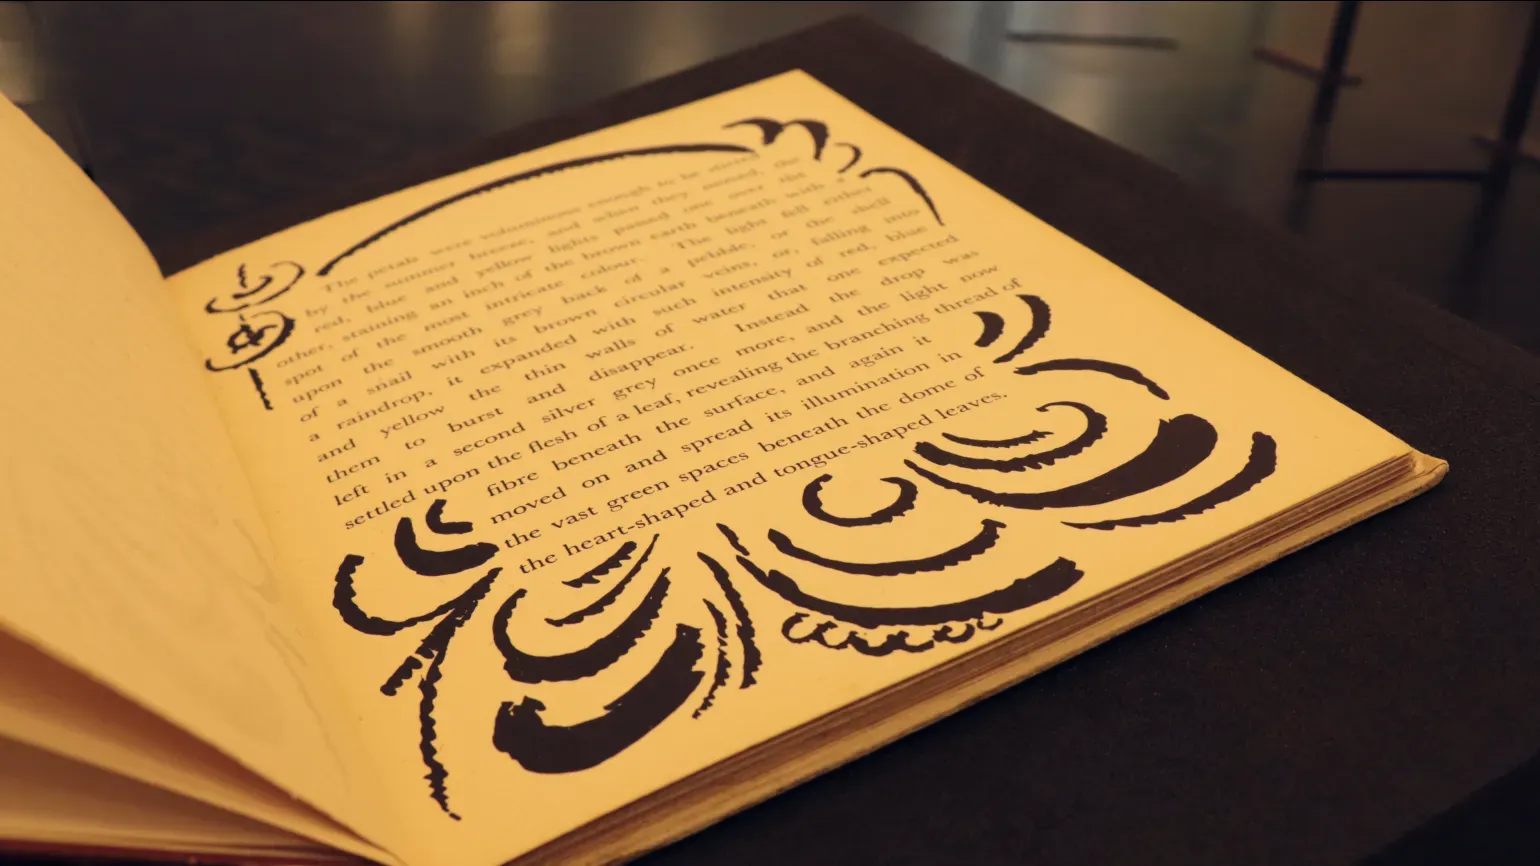 The petals were voluminous enough to be stirred
by the summer breeze, and when they moved, the
red, blue and yellow lights passed one over the
other, staining an inch of the brown earth beneath with a
spot of the most intricate colour. The light fell either
upon the smooth grey back of a pebble, or the shell
of a snail with its brown circular veins, or, falling into
a raindrop, it expanded with such intensity of red, blue
and yellow the thin walls of water that one expected
them to burst and disappear. Instead the drop was
left in a second silver grey once more, and the light now
settled upon the flesh of a leaf, revealing the branching thread of
fibre beneath the surface, and again it
moved on and spread its illumination in
the vast green spaces beneath the dome of
the heart-shaped and tongue-shaped leaves.